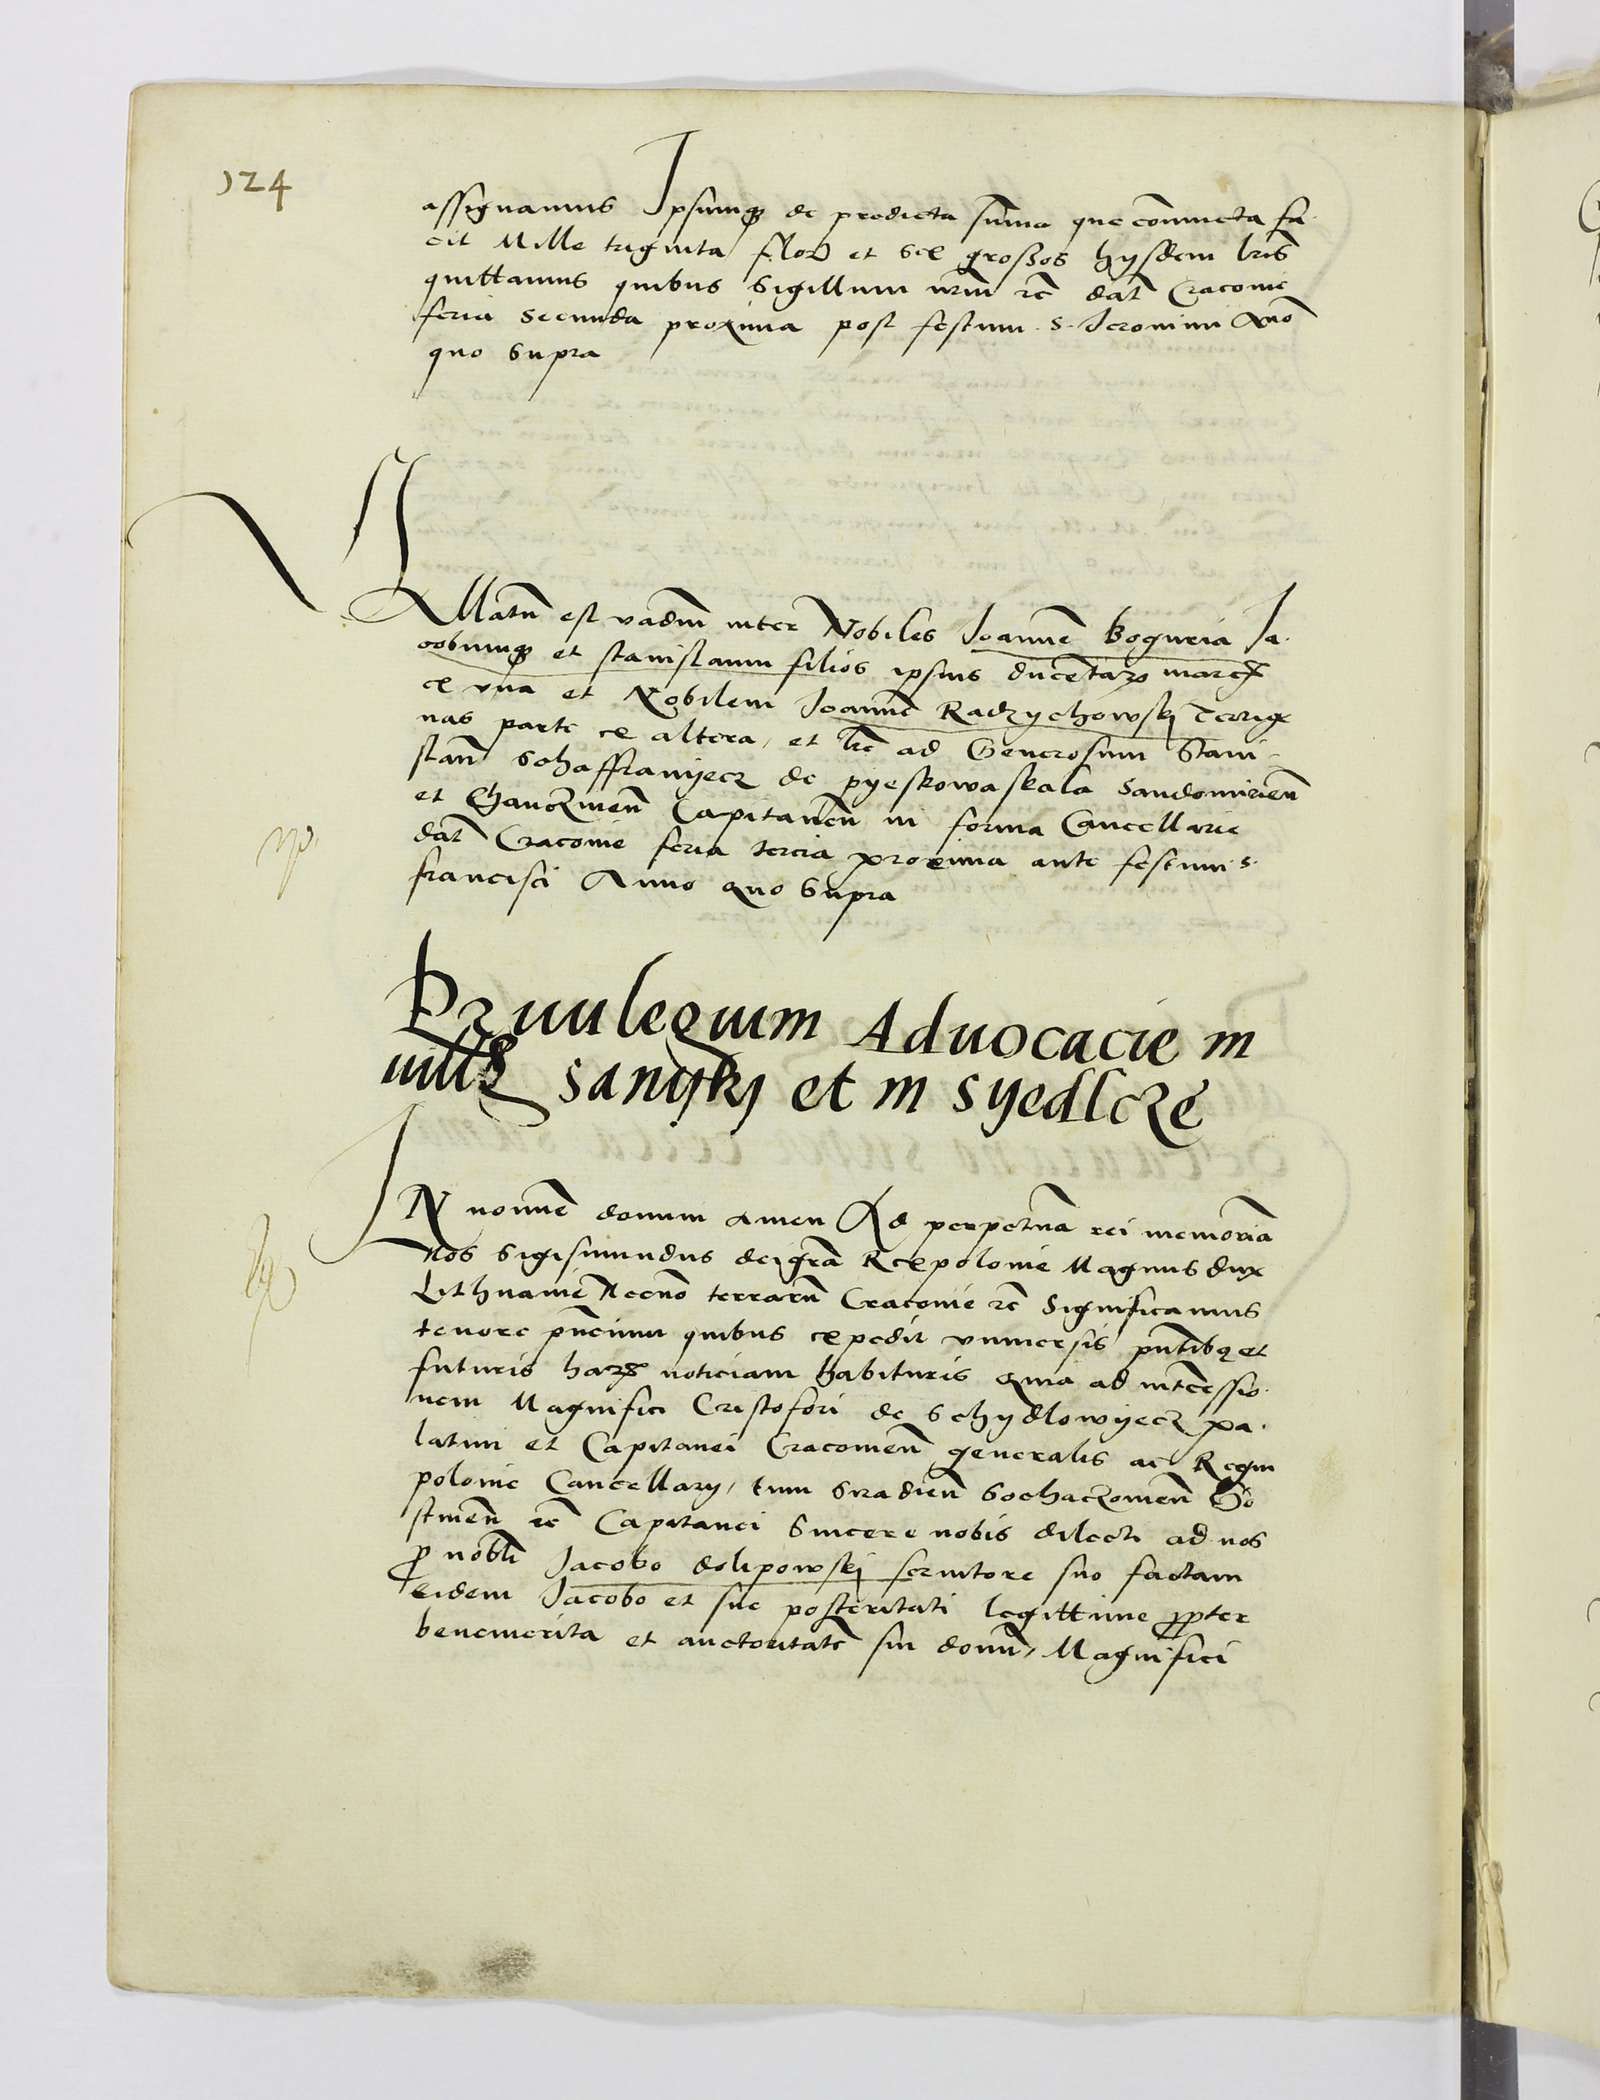 124
assignamus Ipsumq̃ de predicta sũma que coniuncta fa
cit Mille triginta floñ et sex grossos hysdem lr̃is
quittamus quibus Sigillum nr̃m rc̃ dat̃ Cracovie
feria Secunda proxima post festum S. Ieronimi Anõ
quo Supra
Vallatũ est vadiũ inter Nobiles Ioannẽ Boguria Ia
cobumq̃ et stanislaum filios ipsius ducentarꝫ marcꝫ
ex vna et Nobilem Ioannẽ Radzychowskj Terrige
nas parte ex altera, et lr̃e ad Generosum Stani
slaũ Schaffranyecz de pyeskowaskala Sandomirieñ
et Chanczinieñ Capitaneũ in forma Cancellarie
dat̃ Cracovie feria tercia proxima ante festum S.
francisci Anno quo Supra
Privilegium Advocacie in
villis sanyky et in syedlcze
IN nomine domini Amen Ad perpetuã rei memoriã
nos Sigismundus dei grã Rex polonie Magnus dux
Lithuanie Necnõ terrarũ Cracovie rc̃ Significamus
tenore pñcium quibus expedit vniversis pñtibꝫ et
futuris harꝫ noticiam habituris quia ad intercessio
nem Magnifici Cristofori de Schydlowyecz pa
latini et Capitanei Cracovieñ generalis ac Regni
polonie Cancellary, tum Siradieñ Sochaczovieñ Go
stineñ rc̃ Capitanei Sincere nobis dilecti ad nos
ꝓ nobli Iacobo dolipowskj servitore suo factam
eidem Iacobo et sue posteritati legittime ꝓpter
benemerita et auctoritatẽ sui domini, Magnifici